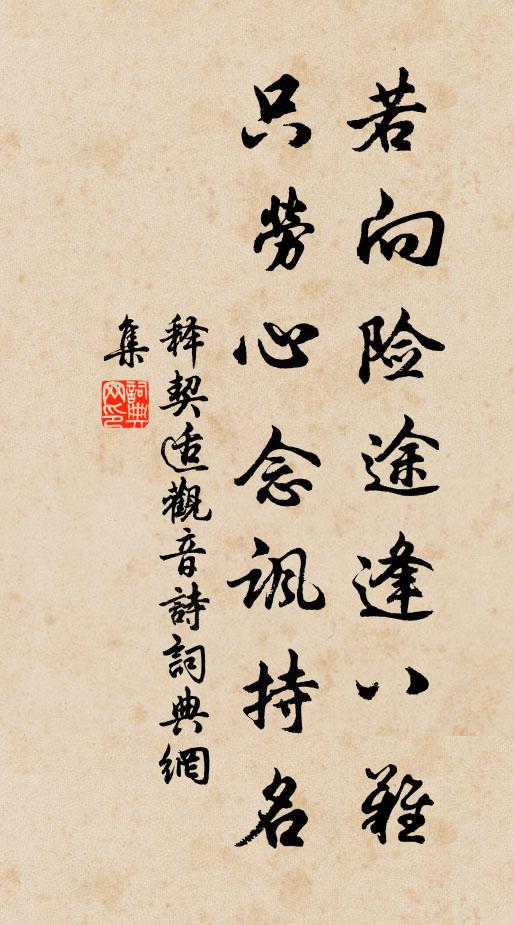 若向险途逢八難
只勞心念諷持名
释契适觀音詩詞典網
集
詞典網印